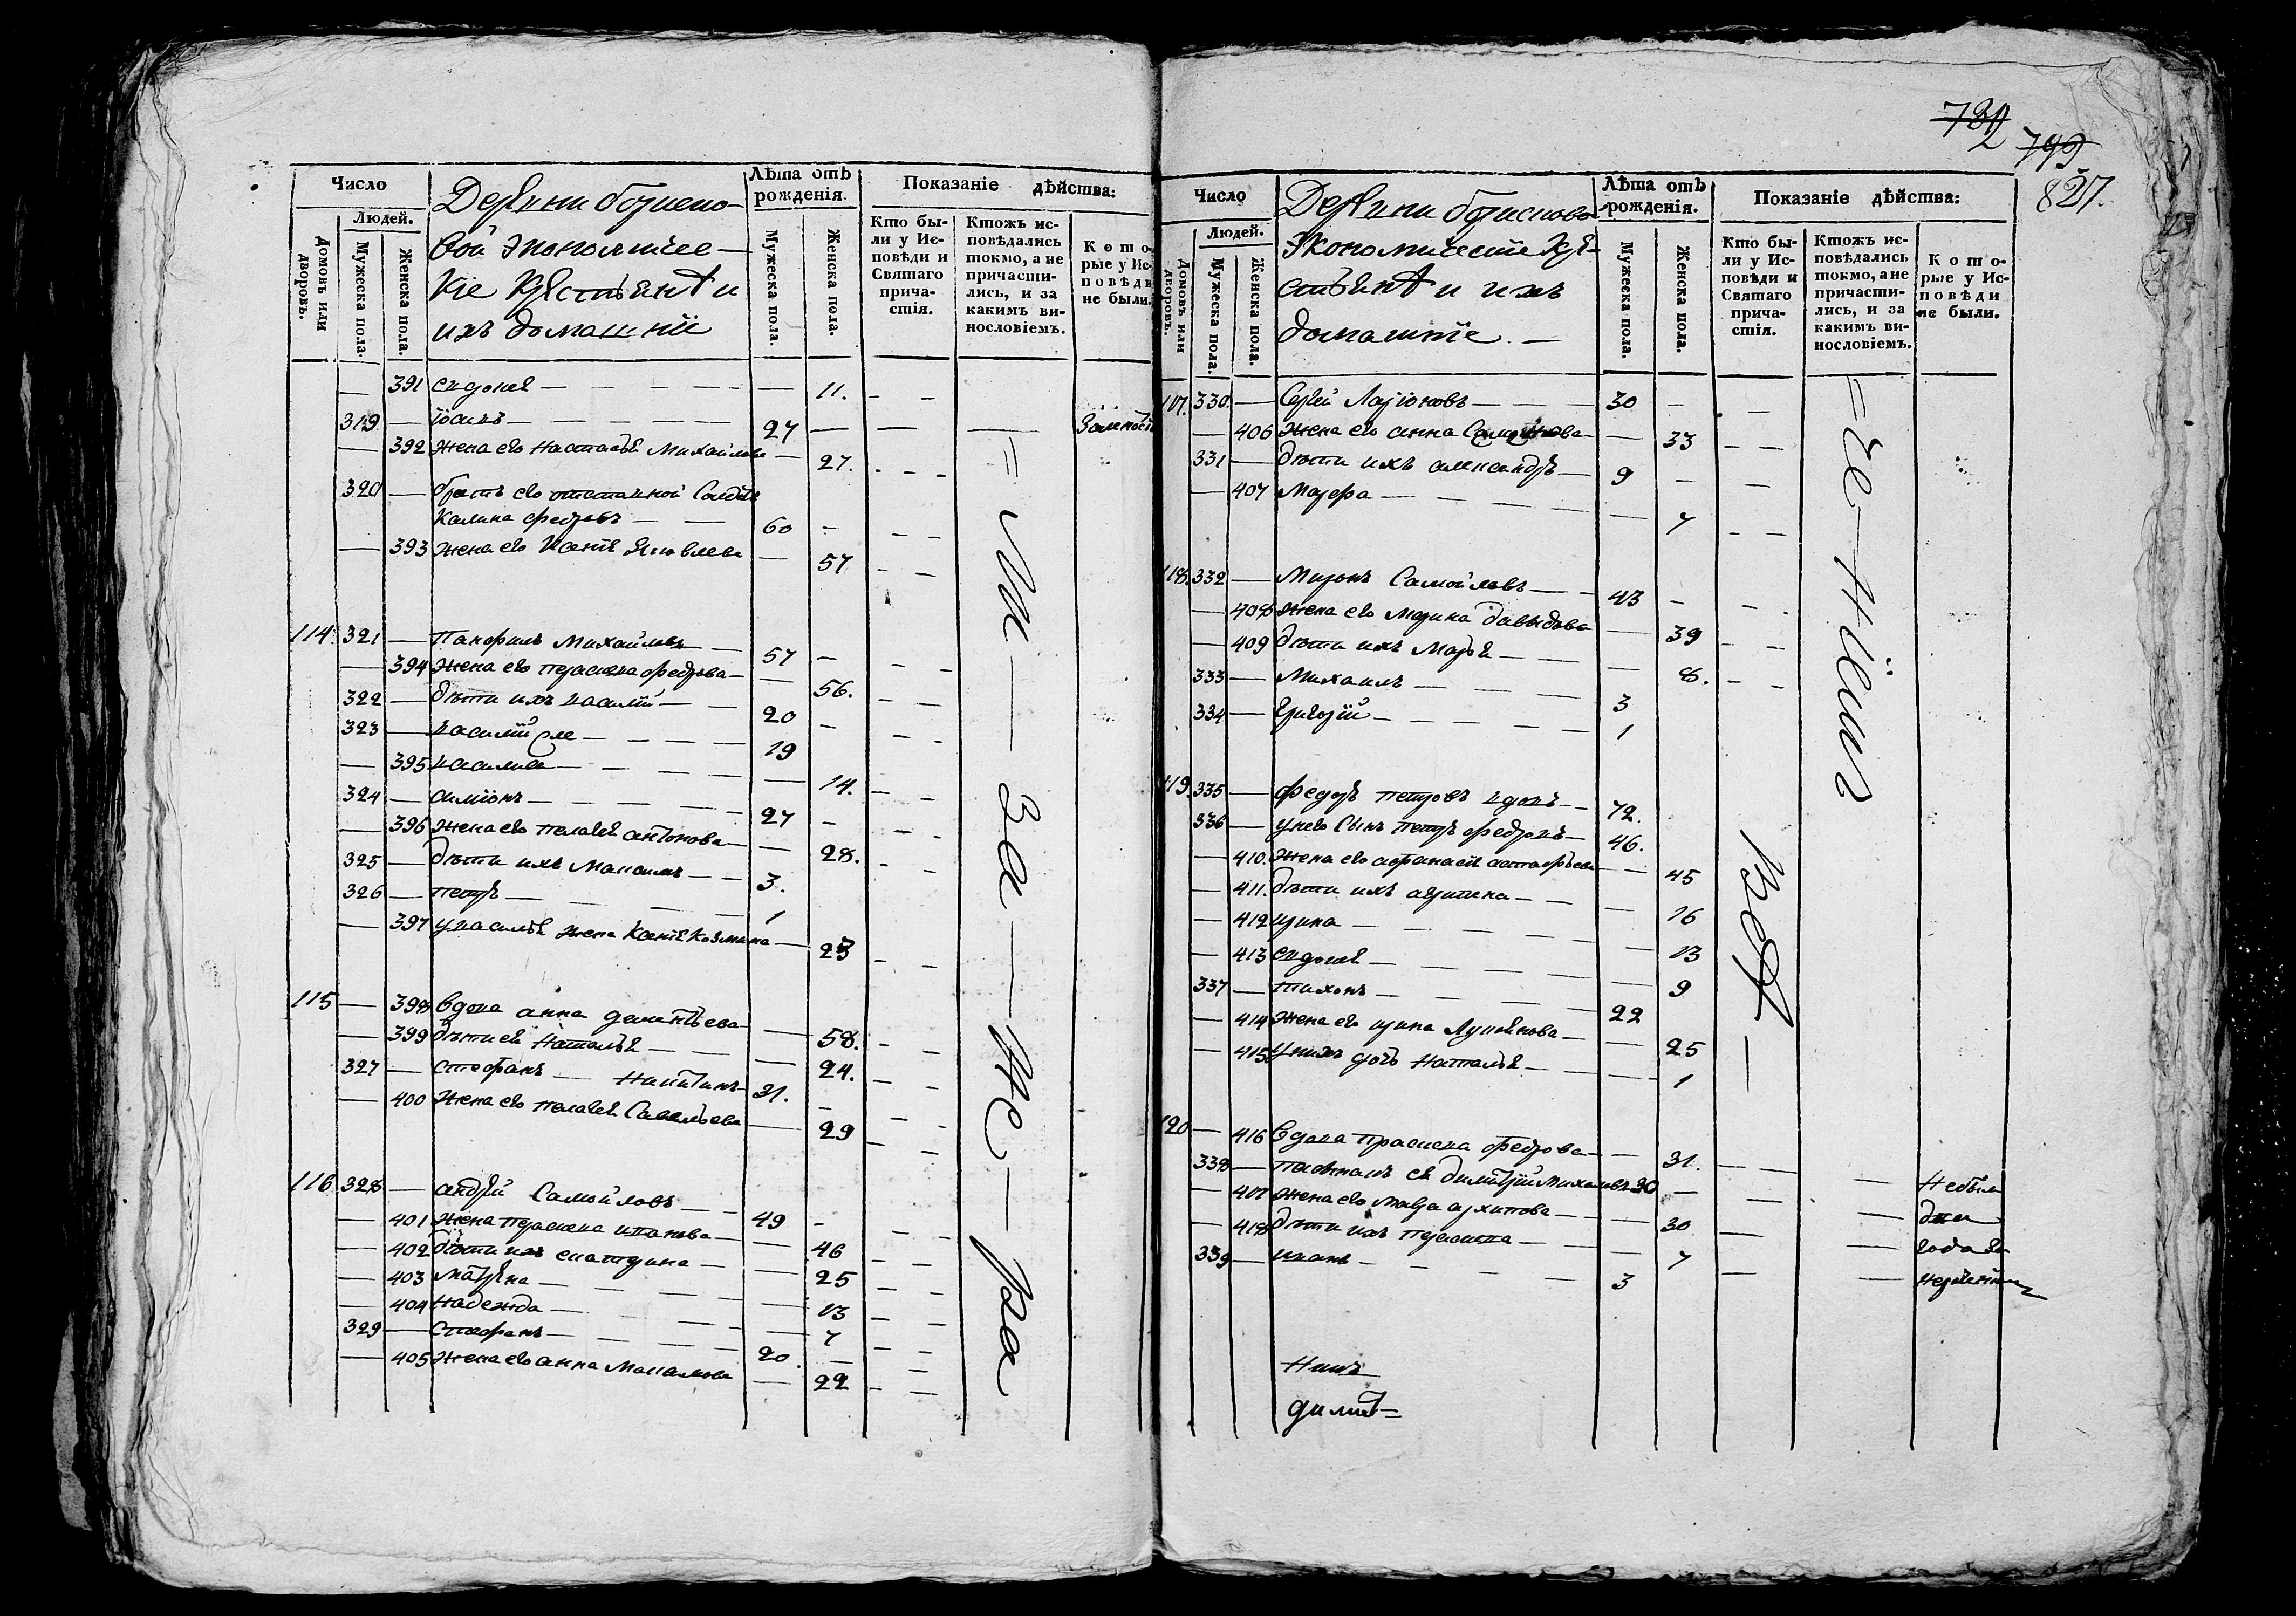 Число
Людей.
Домовъ или дворовъ.
Мужеска пола.
Женска пола.
Деревни борисо-
вой экономичес-
кіе крестьянѣ и
ихъ домашніе
Лѣта отъ рожденія.
Мужеска пола.
Женска пола.
Показаніе дѣйства:
Кто бы-
ли у Ис-
повѣди и
Святаго
прича-
стія.
Ктожъ ис-
повѣдались
токмо, а не
причасти-
лись, и за
какимъ ви-
нословіемъ.
Кото-
рые у Ис-
повѣди
не были.
— 391 евдокея — 11.
319 — іоанъ — 27 —
— 392 жена его настасья Михайлова — 27.
320 — братъ его отставной Солдатъ
Калина федровъ — 60 —
— 393 жена его Ксенія Яковлева — 57
114. 321 — Панфилъ Михайловъ — 57 —
— 394 жена его праскева федрова — 56.
322 — дѣти ихъ василій — 20 —
323 — василій же — 19
— 395 василиса — 14.
324 — симіонъ — 27 —
— 396 жена его пелагея антонова — 28.
325 — дѣти ихъ Максимъ — 3.
326 — петръ — 1
— 397 у василья жена Ксенія Козмина — 23
115 — 398 вдова анна дементьева — 58.
— 399 дѣти ея Наталья — 24.
327 — стефанъ — Никитинъ — 31. —
— 400 жена его пелагея Савельева — 29
116 328 — андрей Самойловъ — 49 —
— 401 жена праскева иванова — 46
— 402 дѣти ихъ — 25
— 403 матрена — 13
— 404 надежда — 7
329 — Стефанъ — 20. —
— 405 жена его анна Максимова — 22
= Ма — за — не — ра
732
793
827.
Число
Людей.
Домовъ или дворовъ.
Мужеска пола.
Женска пола.
Деревни борисовой
экономическіе кре-
стьянѣ и ихъ
домашніе. —
Лѣта отъ рожденія.
Мужеска пола.
Женска пола.
Показаніе дѣйства:
Кто бы-
ли у Ис-
повѣди и
Святаго
прича-
стія.
Ктожъ ис-
повѣдались
токмо, а не
причасти-
лись, и за
какимъ ви-
нословіемъ.
Кото-
рые у Ис-
повѣди
не были.
117. 330. — Сергей Ларіоновъ — 30 —
— 406 жена его анна — 33
331 — дѣти ихъ александръ — 9 —
— 407 Марфа — 7
118. 332 — Миронъ Самойловъ — 43 —
— 408 жена его Марина давыдова — 39
— 409 дѣти ихъ Марья — 8.
333 — Михаилъ — 3
334 — григорій — 1
119. 335 — федоръ петровъ вдовъ — 72.
336 — у него сынъ петръ федровъ — 46.
— 410. жена его афанасія — 45
— 411. дѣти ихъ — 16
— 412 ирина — 13
— 413 евдокея — 9
337 — тихонъ — 22
— 414 жена его ирина Лукьянова — 25
— 415 у нихъ дочь Наталья — 1
120 — 416 вдова праскева федрова — 31.
338 — пасынакъ ея димитрій Михаловъ 30 —
— 417 жена его мавра архипова — 30
— 418 дѣти ихъ — 7
339 — иванъ — 3
= че — ніем
всѣ —
Небыли
два
года за
нераченіем
Нихъ
димит=